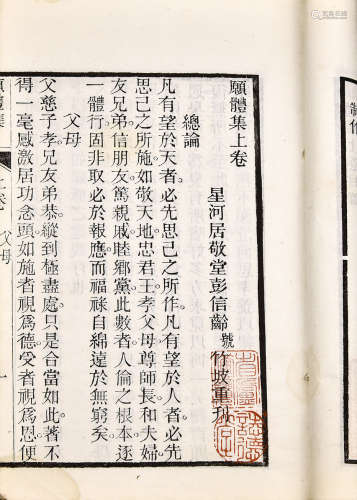 願體集上卷
星河居敬堂彭信齡號竹坡重刊
總論
凡有望於天者必先思己之所作凡有望於人者必先
思己之所施如敬天地忠君王孝父母尊師長和夫婦
友兄弟信朋友篤親戚睦鄉黨此數者人倫之根本逐
一體行固非取必於報應而福祿自綿遠於無窮矣
父母
父慈子孝兄友弟恭縱到極盡處只是合當如此著不
得一毫感激居功念頭如施者視為德受者視為恩便
願體集
上卷
父母
一